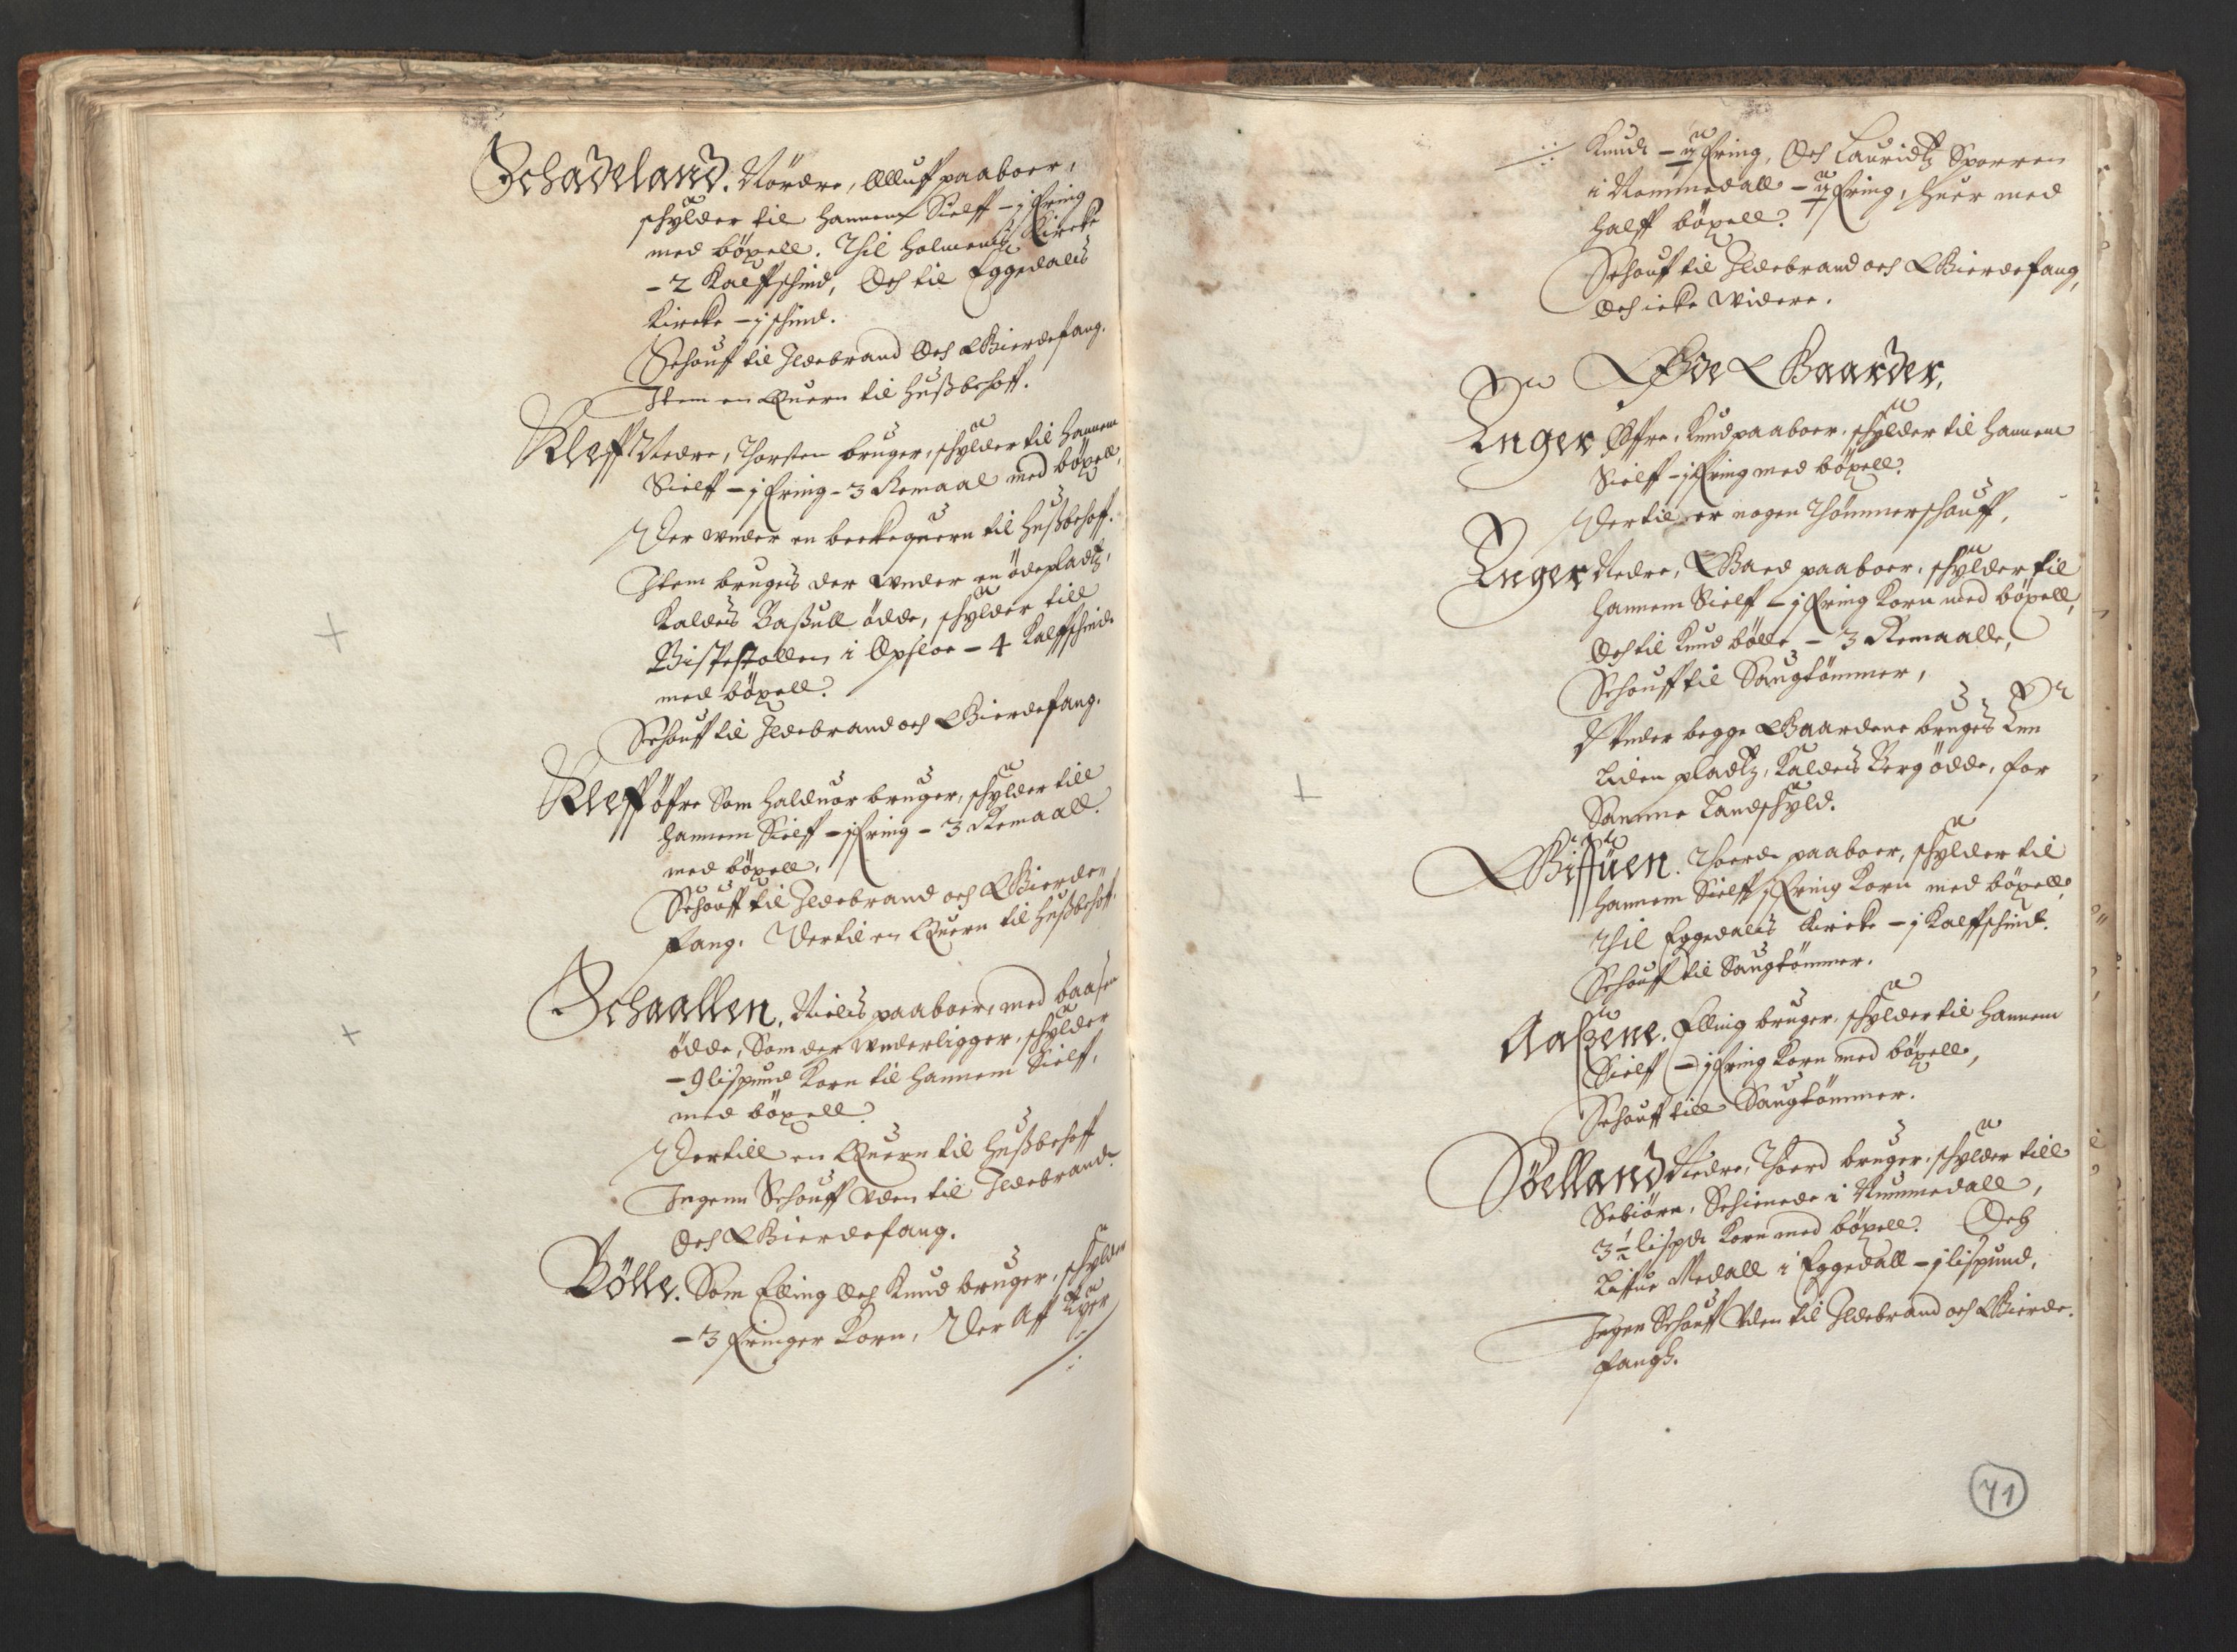 Schadeland. Nördre, Olluf paaboer,
schylder til hannem Sielff – j fring
med böxell. Thil Holmens Kircke
– 2 Kalffschind, Och til Eggedals
Kircke – j schind.
Schouf til Ildebrand Och Gierdefang.
Item en Quern til Hußbehoff.
Kleff Nedre, Thorsten bruger, schylder til hannem
Sielff – j fring – 3 Remaal med böxell,
Der under en beckequern til Hußbehoff.
Item brugis der under en ödepladtz,
Kaldis Baßull ödde, schylder till
Bispestollen i Opsloe – 4 Kalffschind
med böxell.
Schouf til Ildebrand och Gierdefang.
Kleff öfre Som Halduor bruger, schylder till
hannem Sielff – j fring – 3 Remaall.
med böxell,
Schouff til Ildebrand och Gierde„
fang. Dertil en Quern til Hußbehoff.
Schaallen, Niels paaboer, med baasen
ödde, Som der underligger, schylder
– 9 lispund Korn til hannem Sielff,
med böxell.
Dertill en Quern til Hußbehoff
Ingenn Schouff Uden til Ildebrand
Och Gierdefang.
Bölle. Som Elling Och Knud bruger, schylder
– 3 fringer Korn, Der Aff Eyer
Knud – ½ fring, Och Lauridtz Sporren
i Nommedall – ½ fring, huer med
halff böxell.
Schouff til Ildebrand och Gierdefang,
Och icke Widere.
Öde Gaarder.
Enger Öffre, Knud paaboer, schylder til hannem
Sielff – j fring med böxell.
Dertil er nogen Thömmerschouff,
Enger Nedre, Gaed paaboer, schylder til
hannem Sielff – j fring Korn med böxell,
Och til Knud bölle – 3 Remaalle,
Schouff til Saugtömmer,
Under begge Gaardene brugis Een
Liden pladtz, Kaldes Berg ödde, for
Samme Landschyld.
Giffuen. Thoerd paaboer, schylder til
hannem Sielff j fring Korn med böxell,
Thil Eggedals Kircke – j Kalffschind.
Schouff til Saugtömmer.
Aaßene. Elling bruger, schylder til hannem
Sielff – j fring Korn med böxell,
Schouff till Saugtömmer.
Söelland Nedre, Thoerd bruger, schylder till
Sebiörn, Schienede i Nummedall,
3½ lispd Korn med böxell. Och
Liffue Medall i Eggedall – j lispund,
Ingen Schouff Uden til Ildebrand och Gierde„
fangh.
71